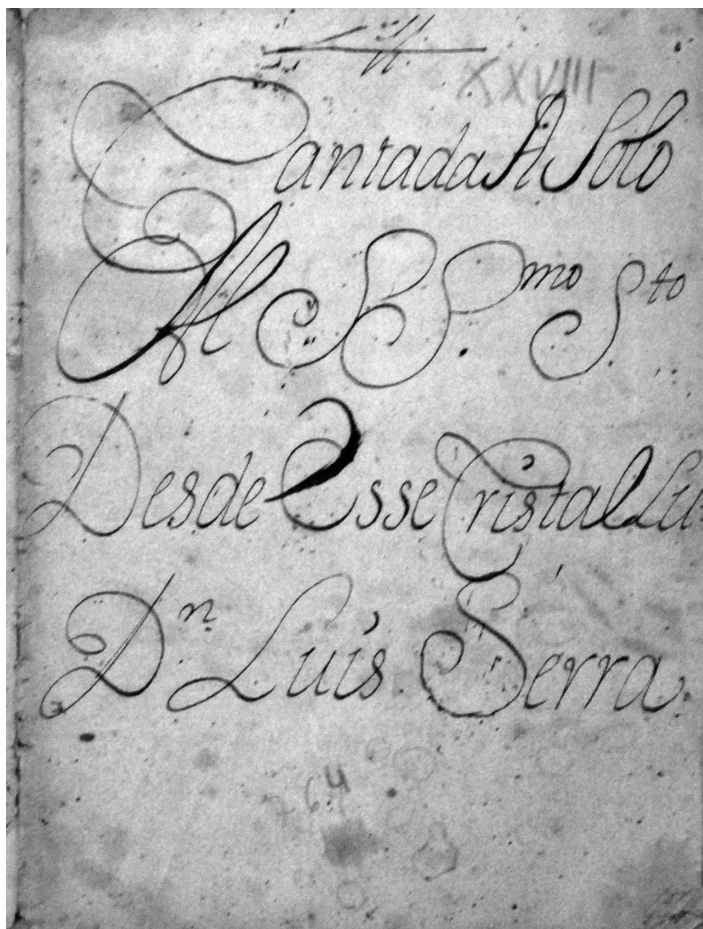 XXVIII
Cantada A Solo
Al SS.mo S.to
Desde Esse Cristal Lu-
D.n Luis Serra.
764